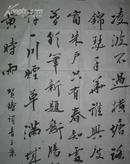 凌波不過橫塘
錦瑟年華誰與度
窗朱戶只有春知
彩筆新題斷腸
許一川煙草滿城
黃時雨 賀鑄詞青玉案